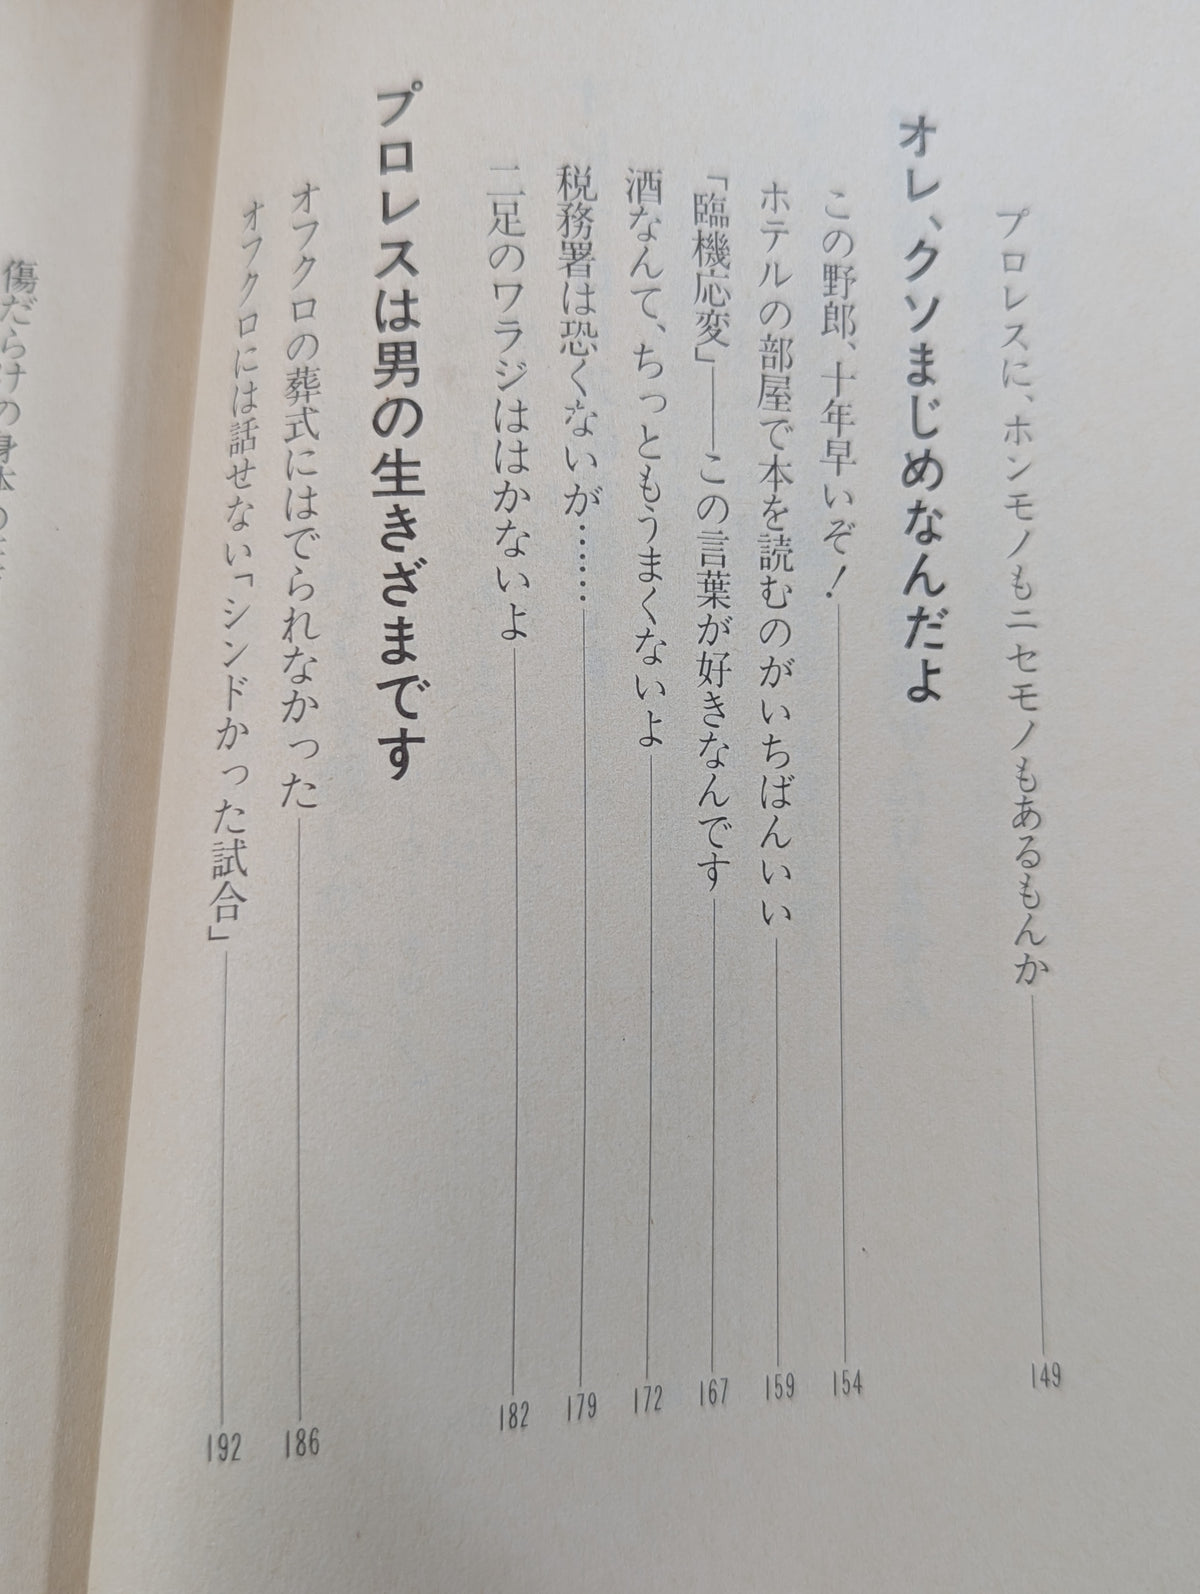 プロレスに、ホンモノもニセモノもあるもんか 149
オレ、クソまじめなんだよ
この野郎、十年早いぞ! 154
ホテルの部屋で本を読むのがいちばんいい 159
「臨機応変」——この言葉が好きなんです 167
酒なんて、ちっともうまくないよ 172
税務署は恐くないが…… 179
二足のワラジははかないよ 182
プロレスは男の生きざまです
オフクロの葬式にはでられなかった 186
オフクロには話せない「シンドかった試合」 192
傷だらけの身体の